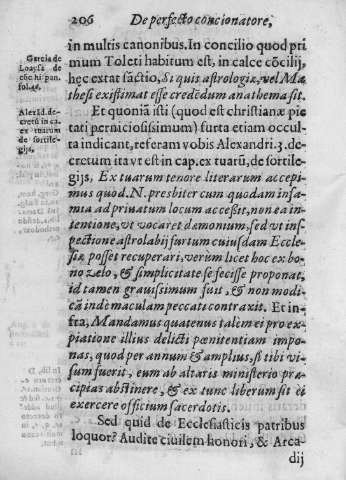 206 De perfecto concionatore,
in multis canonibus. In concilio quod pri
mum Toleti habitum est, in calce cõcilij,
hęc extat sãctio, Si quis astrologiæ, vel Ma
thesi existimat esse credẽdum anathema sit.
Et quoniã isti (quod est christianæ pie
tati perniciosissimum) furta etiam occul
ta indicant, referam vobis Alexandri. 3. de
cretum ita vt est in cap. ex tuarũ, de sortile
gijs, Ex tuarum tenore literarum accepi
mus quod. N. presbiter cum quodam infa
mi ad priuatum locum accessit, non ea in
tentione, vt vocaret dæmonium, sed vt ins
pectione astrolabij furtum cuiusdam Eccle
siæ posset recuperari, verùm licet hoc ex bo
no zelo, & simplicitate se fecisse proponat,
id tamen grauissimum fuit, & non modi
cã inde maculam peccati contraxit. Et in
fra, Mandamus quatenus talem ei pro ex
piatione illius delicti pœnitentiam impo
nas, quod per annum & amplius, si tibi vi
sum fuerit, eum ab altaris ministerio præ
cipias abstinere, & ex tunc liberum sit ei
exercere officium sacerdotis.
Sed quid de Ecclesiasticis patribus
loquor? Audite ciuilem honori, & Arca
dij
Garcia de
Loaysa de
cõc. hi pan.
fol. 46.
Alexãd. de-
cretũ in ca.
ex tuarum
de sortile-
gijs.